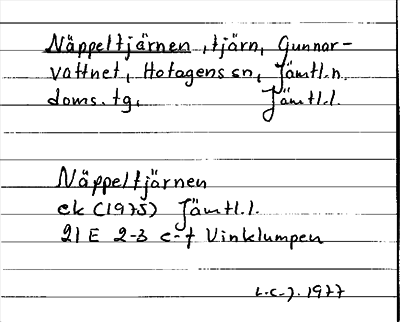 Näppeltjärnen, tjärn, Gunnar-
vattnet, Hotagens sn, Jämtl.n.
doms. tg. Jämtl.l.
Näppeltjärnen
ek (1975) Jämtl.l.
21 E 2-3 e-f Vinklumpen
L.C-J. 1977